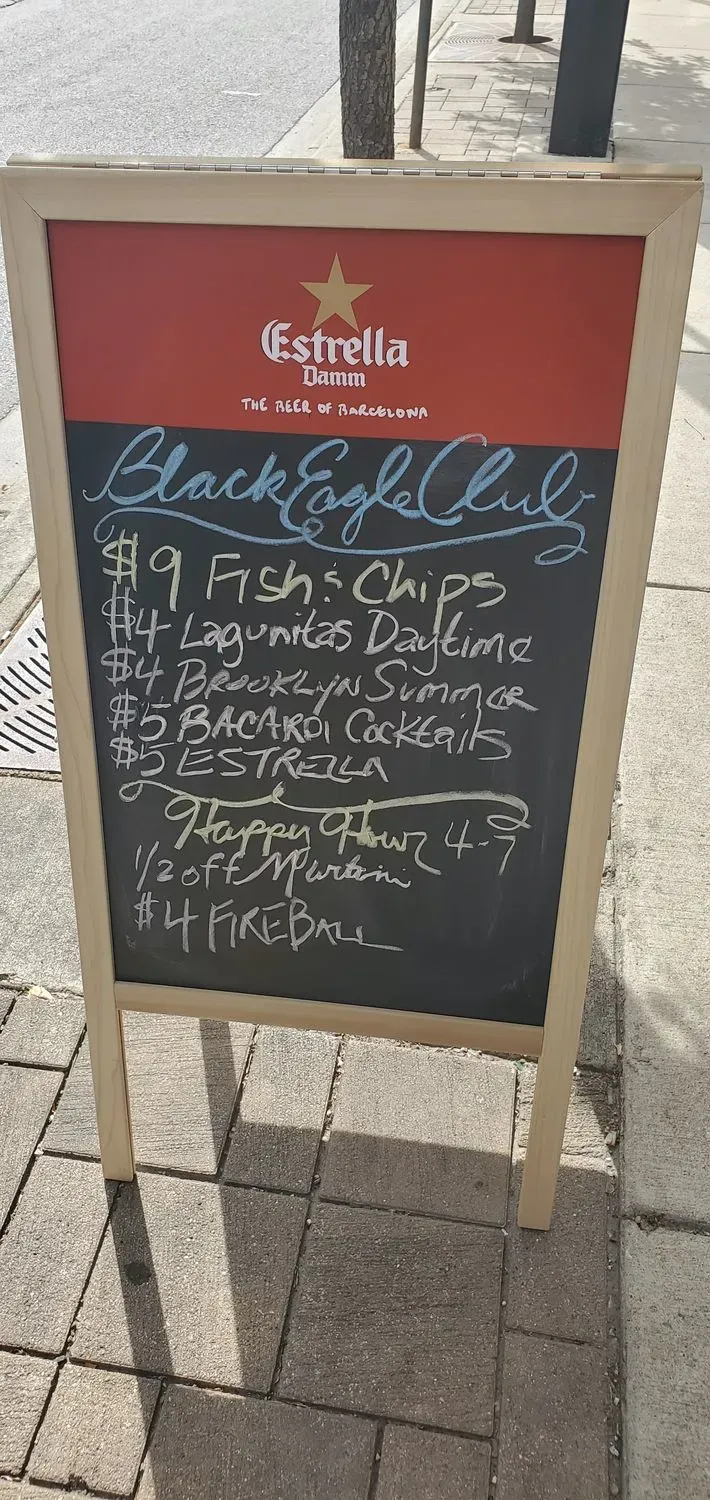 Estrella
Damm
THE BEER OF BARCELONA
Black Eagle Club
$9 Fish & Chips
$4 Lagunitas Daytime
$4 BROOKLYN Summer
$5 BACARDI Cocktails
$5 ESTRELLA
Happy Hour 4-7
1/2 off Martini
$4 FIREBALL